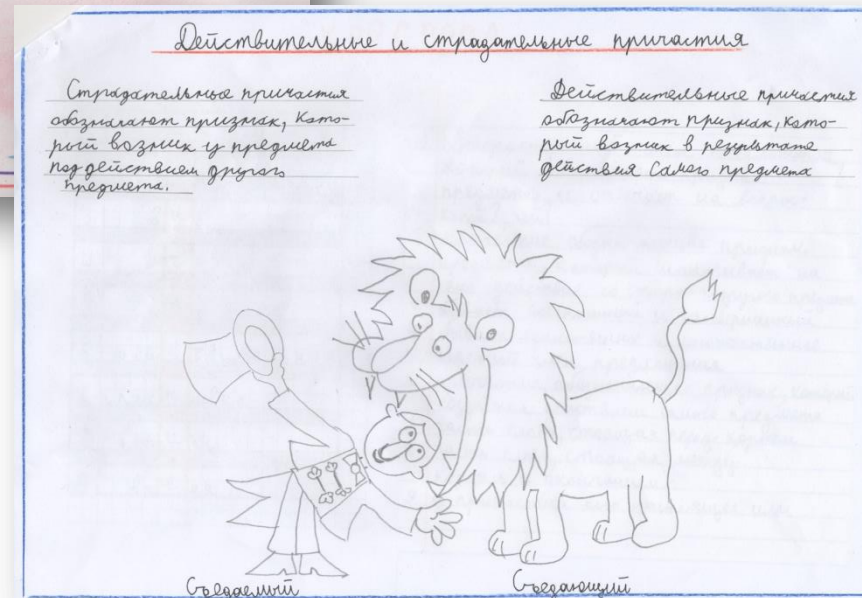 Действительные и страдательные причастия
Страдательные причастия
обозначают признак, кото-
рый возник у предмета
под действием другого
предмета.
Действительные причастия
обозначают признак, кото-
рый возник в результате
действия самого предмета
Съедаемый
Съедающий